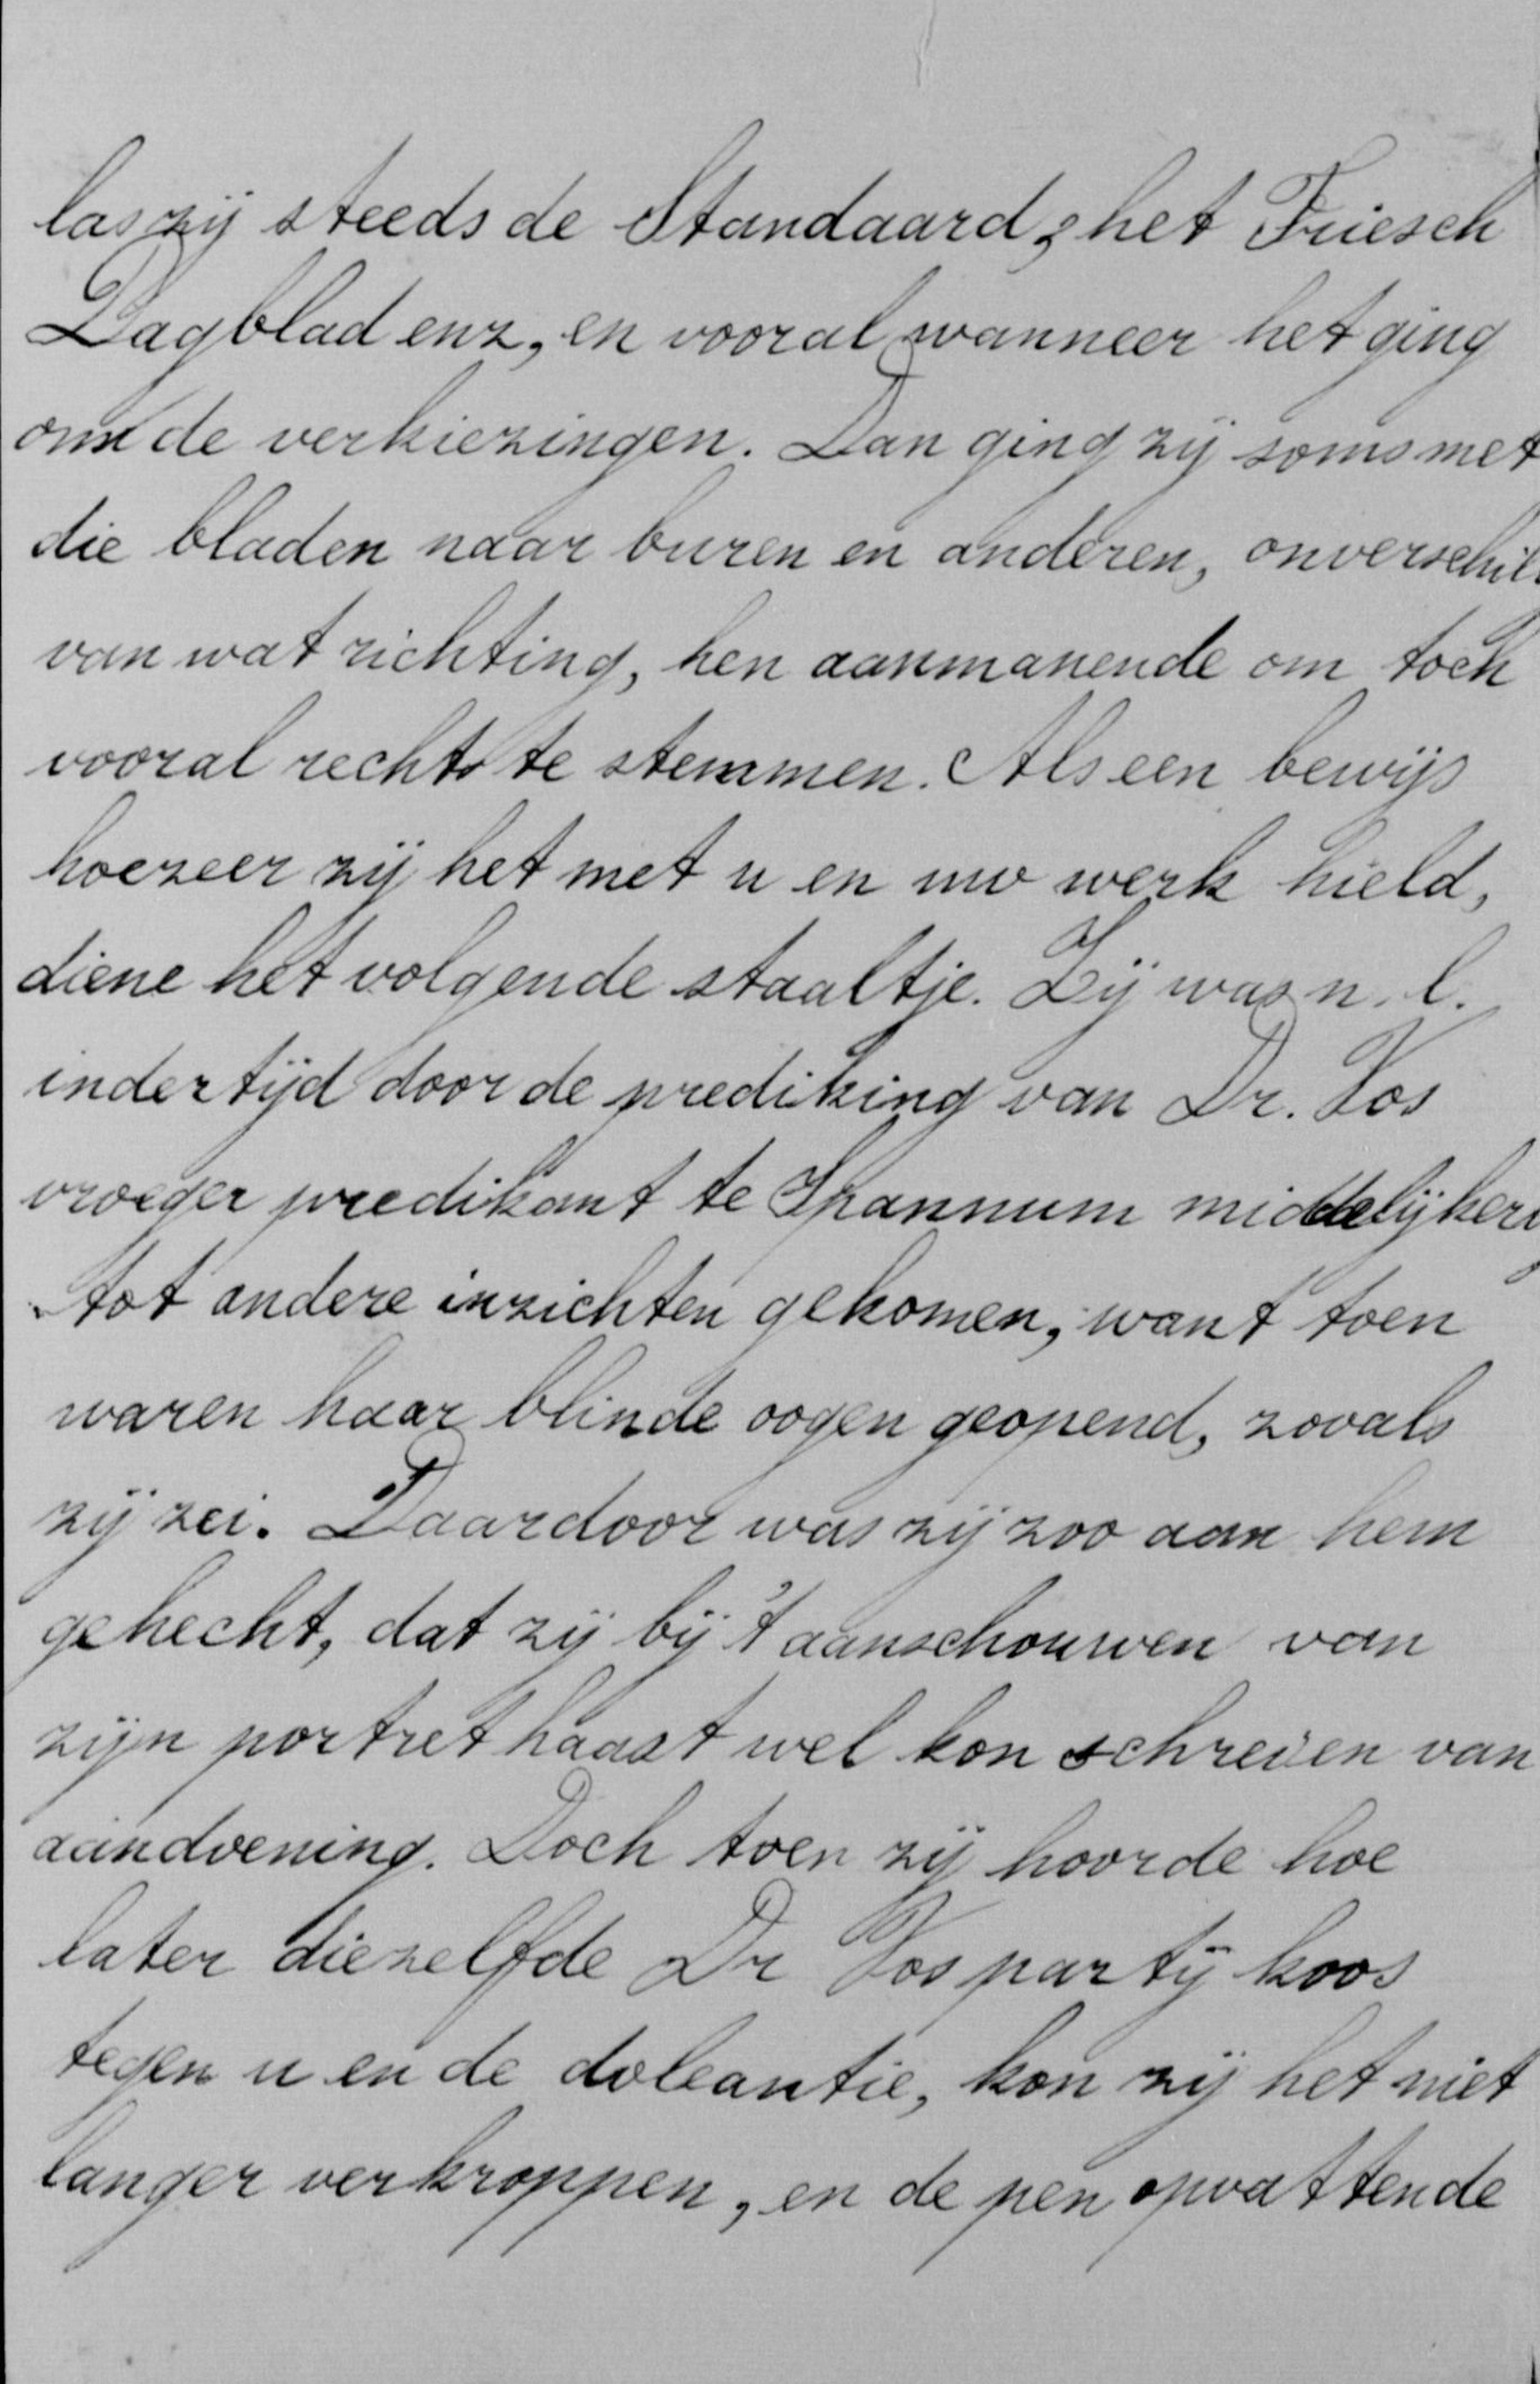 las zij steeds de Standaard, het Friesch
Dagblad enz, en vooral wanneer het ging
om de verkiezingen. Dan ging zij soms met
die bladen naar buren en anderen, onverschil
van wat richting, hen aanmanende om toch
vooral rechts te stemmen. Als een bewijs
hoezeer zij het met u en uw werk hield,
diene het volgende staaltje. Zij was n.l.
indertijd door de prediking van Dr. Vos
vroeger predikant te Spannum middelijkerw
tot andere inzichten gekomen, want toen
waren haar blinde oogen geopend, zooals
zij zei. Daardoor was zij zoo aan hem
gehecht, dat zij bij 't aanschouwen van
zijn portret haast wel kon schreien van
aandoening. Doch toen zij hoorde hoe
later diezelfde Dr Vos partij koos
tegen u en de doleantie, kon zij het niet
langer verkroppen, en de pen opvattende